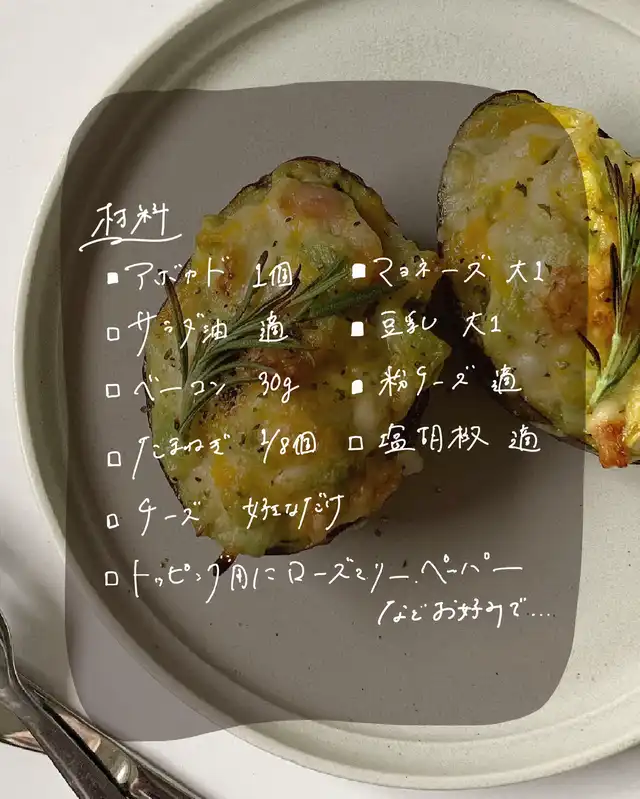 材料
■アボカド 1個
□サラダ油 適
□ベーコン 30g
□たまねぎ 1/8個
□チーズ 好きなだけ
■マヨネーズ 大1
■豆乳 大1
■粉チーズ 適
□塩胡椒 適
□トッピング用にローズマリー、ペーパー
などお好みで…